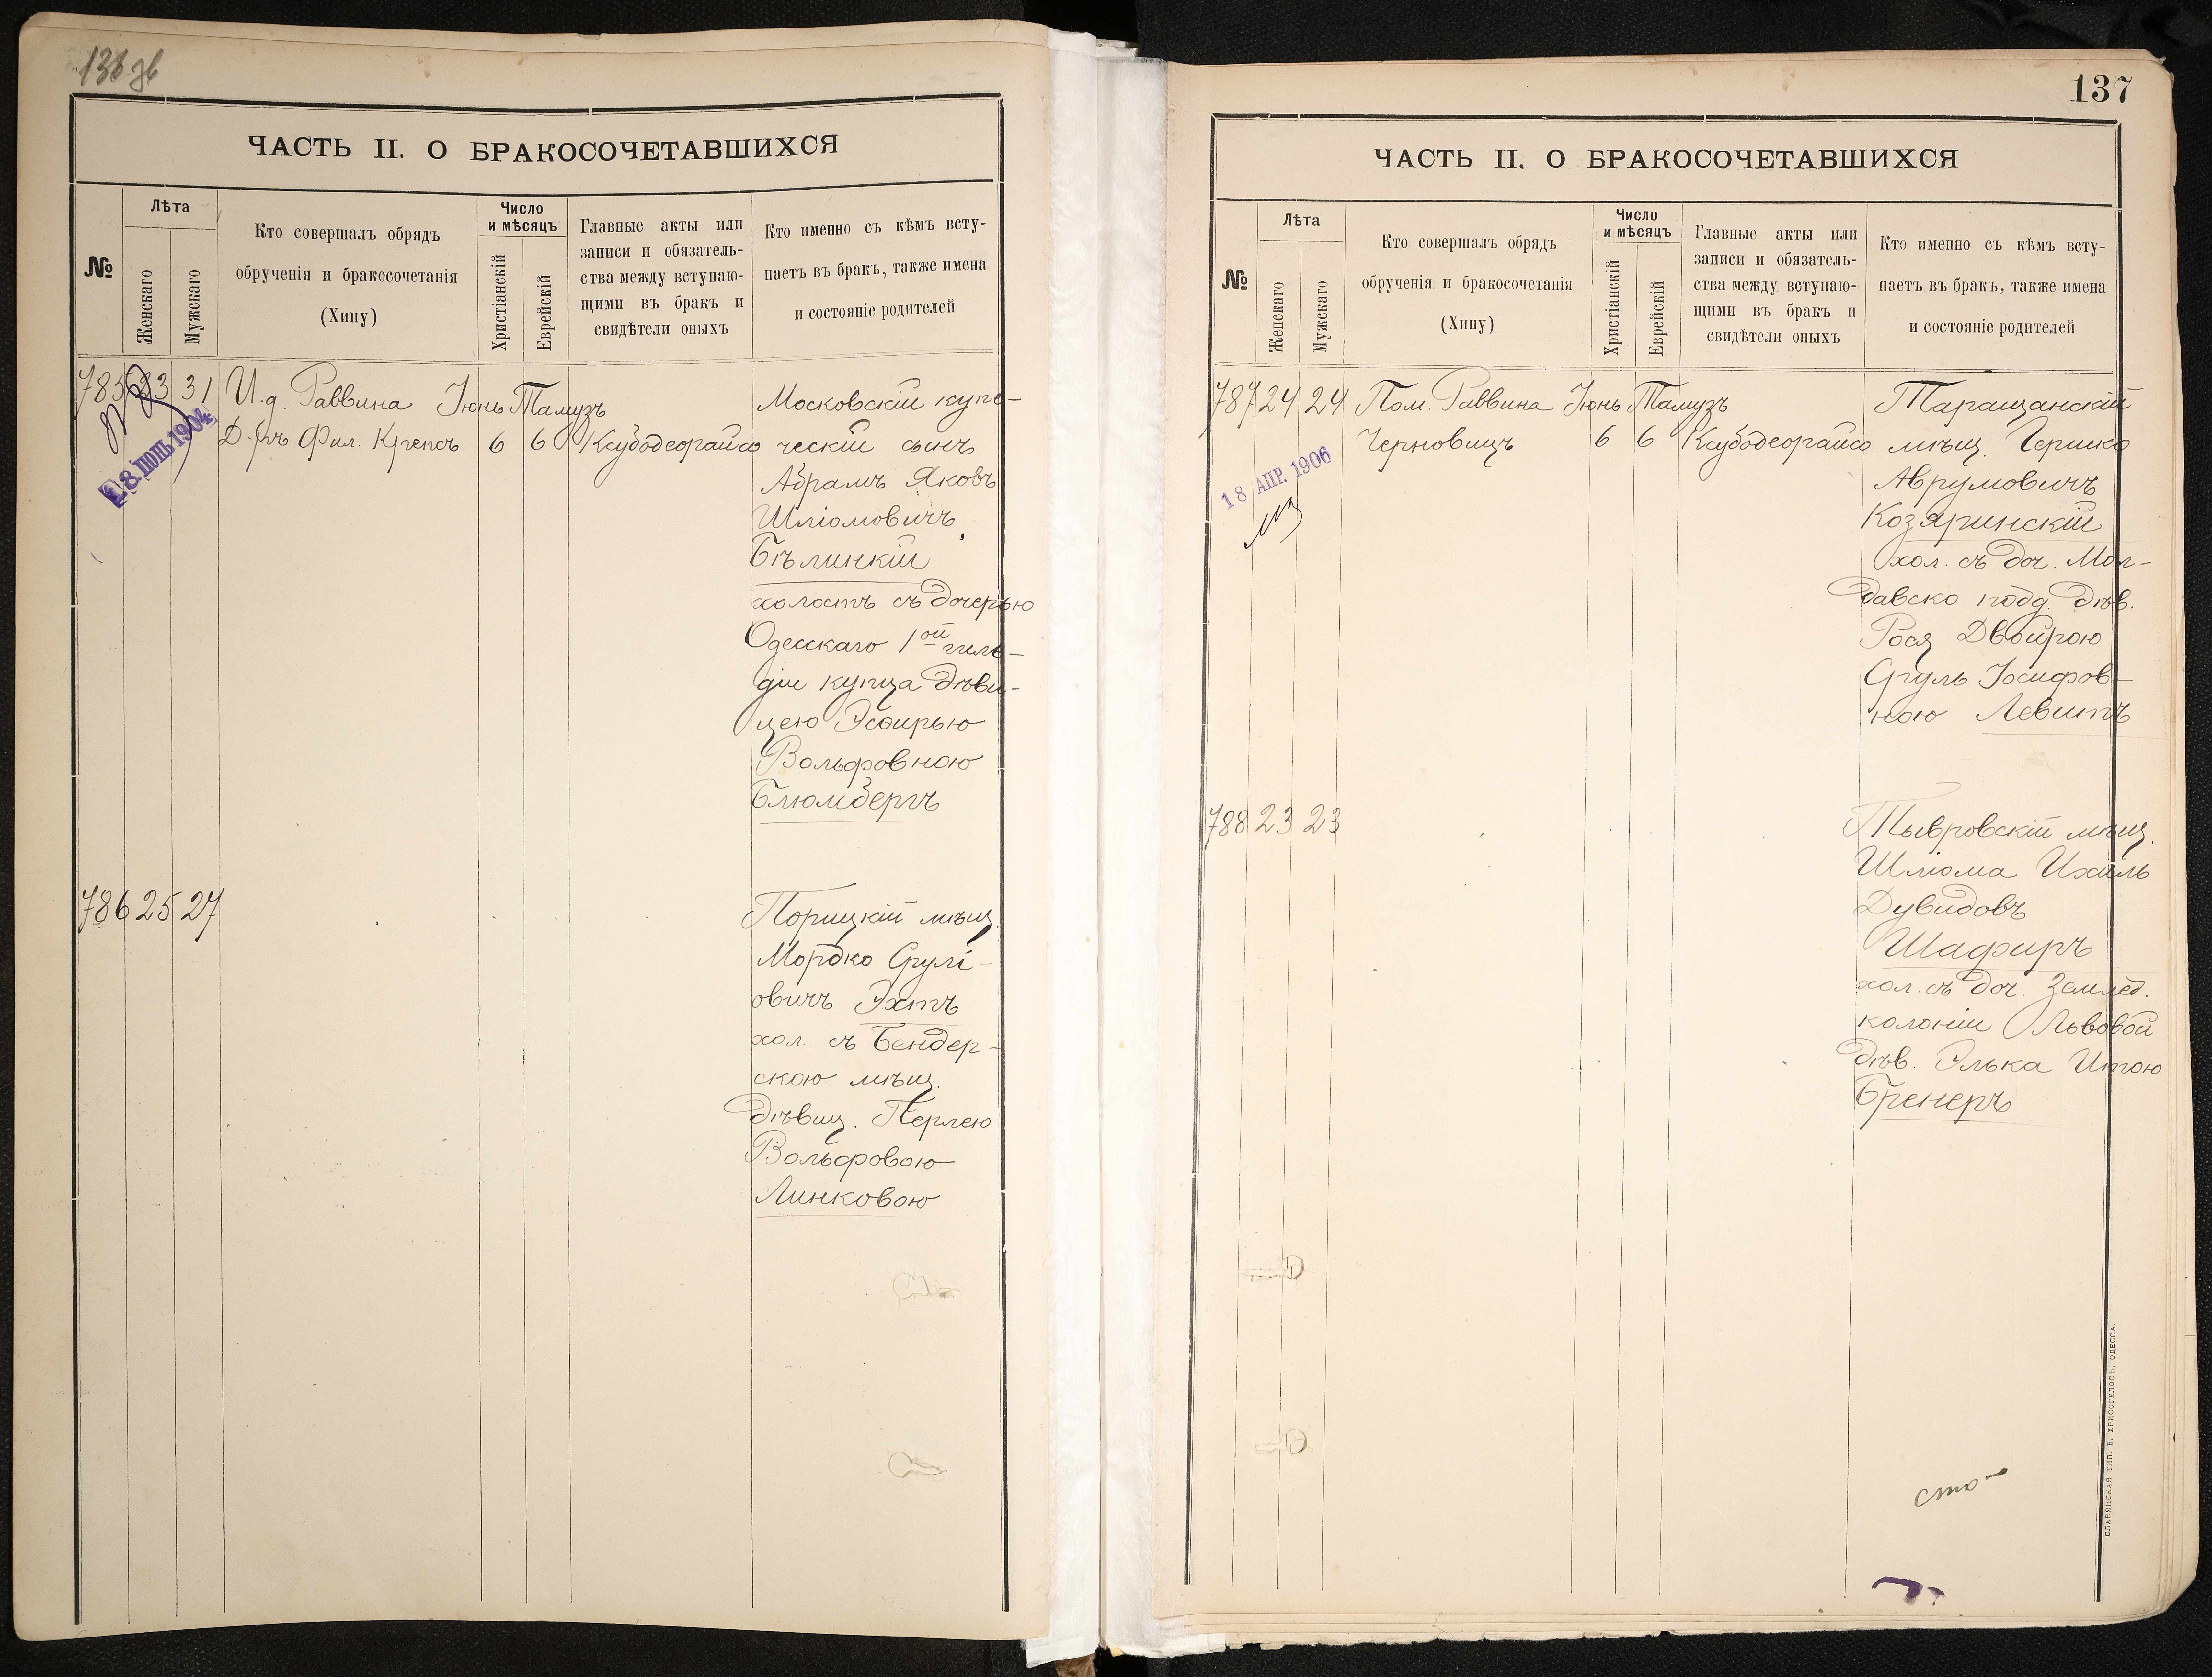 136 зв
ЧАСТЬ II. О БРАКОСОЧЕТАВШИХСЯ
№
Лѣта
Женскаго
Мужскаго
Кто совершалъ обрядъ
обрученія и бракосочетанія
(Хипу)
Число
и мѣсяцъ
Христіанскій
Еврейскій
Главные акты или
записи и обязатель-
ства между вступаю-
щими въ бракъ и
свидѣтели оныхъ
Кто именно съ кѣмъ всту-
паетъ въ бракъ, также имена
и состояніе родителей
785 23 31 И.д. Раввина Іюнь Тамузъ
Д-ръ Фил. Крепсъ 6 6 Ксубодеорайсо
18 ІЮНЬ 1904
Московскій купе-
ческій сынъ
Абрамъ Яковъ
Шліомовичъ
Бѣлинкій
холостъ съ дочерью
Одесскаго 1ой гиль-
діи купца дѣви-
цею Эсѳирью
Вольфовною
Блюмбергъ
786 25 27
Порицкій мѣщ.
Мордко Срулі-
овичъ Эхтъ
хол. съ Бендер-
скою мѣщ.
дѣвиц. Перлею
Вольфовою
Линковою
137
ЧАСТЬ II. О БРАКОСОЧЕТАВШИХСЯ
№
Лѣта
Женскаго
Мужскаго
Кто совершалъ обрядъ
обрученія и бракосочетанія
(Хипу)
Число
и мѣсяцъ
Христіанскій
Еврейскій
Главные акты или
записи и обязатель-
ства между вступаю-
щими въ бракъ и
свидѣтели оныхъ
Кто именно съ кѣмъ всту-
паетъ въ бракъ, также имена
и состояніе родителей
787 24 24 Пом. Раввина Іюнь Тамузъ
Черновицъ 6 6 Ксубодеорайсо
18 АПР. 1906
Таращанскій
мѣщ. Гершко
Аврумовичъ
Козяринскій
хол. съ доч. Мол-
давско подд. дѣв.
Рося Двойрою
Сруль Іосифов-
ною Левитъ
788 23 23
Тывровскій мѣщ.
Шліома Ихиль
Дувидовъ
Шафиръ
хол. съ доч. Землед.
колоніи Львовой
дѣв. Элька Итою
Бренеръ
сто
СЛАВЯНСКАЯ ТИП. Е. ХРИСОГЕЛОСЪ, ОДЕССА.